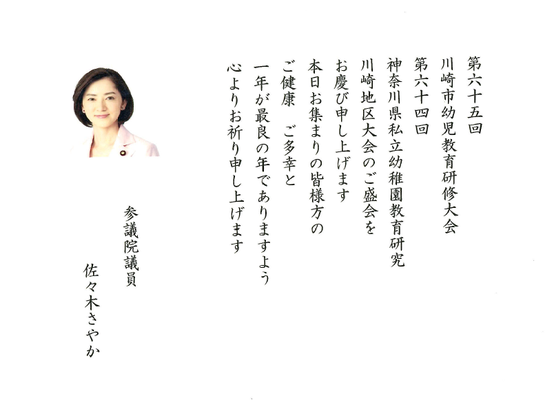 第六十五回
川崎市幼児教育研修大会
第六十四回
神奈川県私立幼稚園教育研究
川崎地区大会のご盛会を
お慶び申し上げます
本日お集まりの皆様方の
ご健康　ご多幸と
一年が最良の年でありますよう
心よりお祈り申し上げます
参議院議員
佐々木さやか